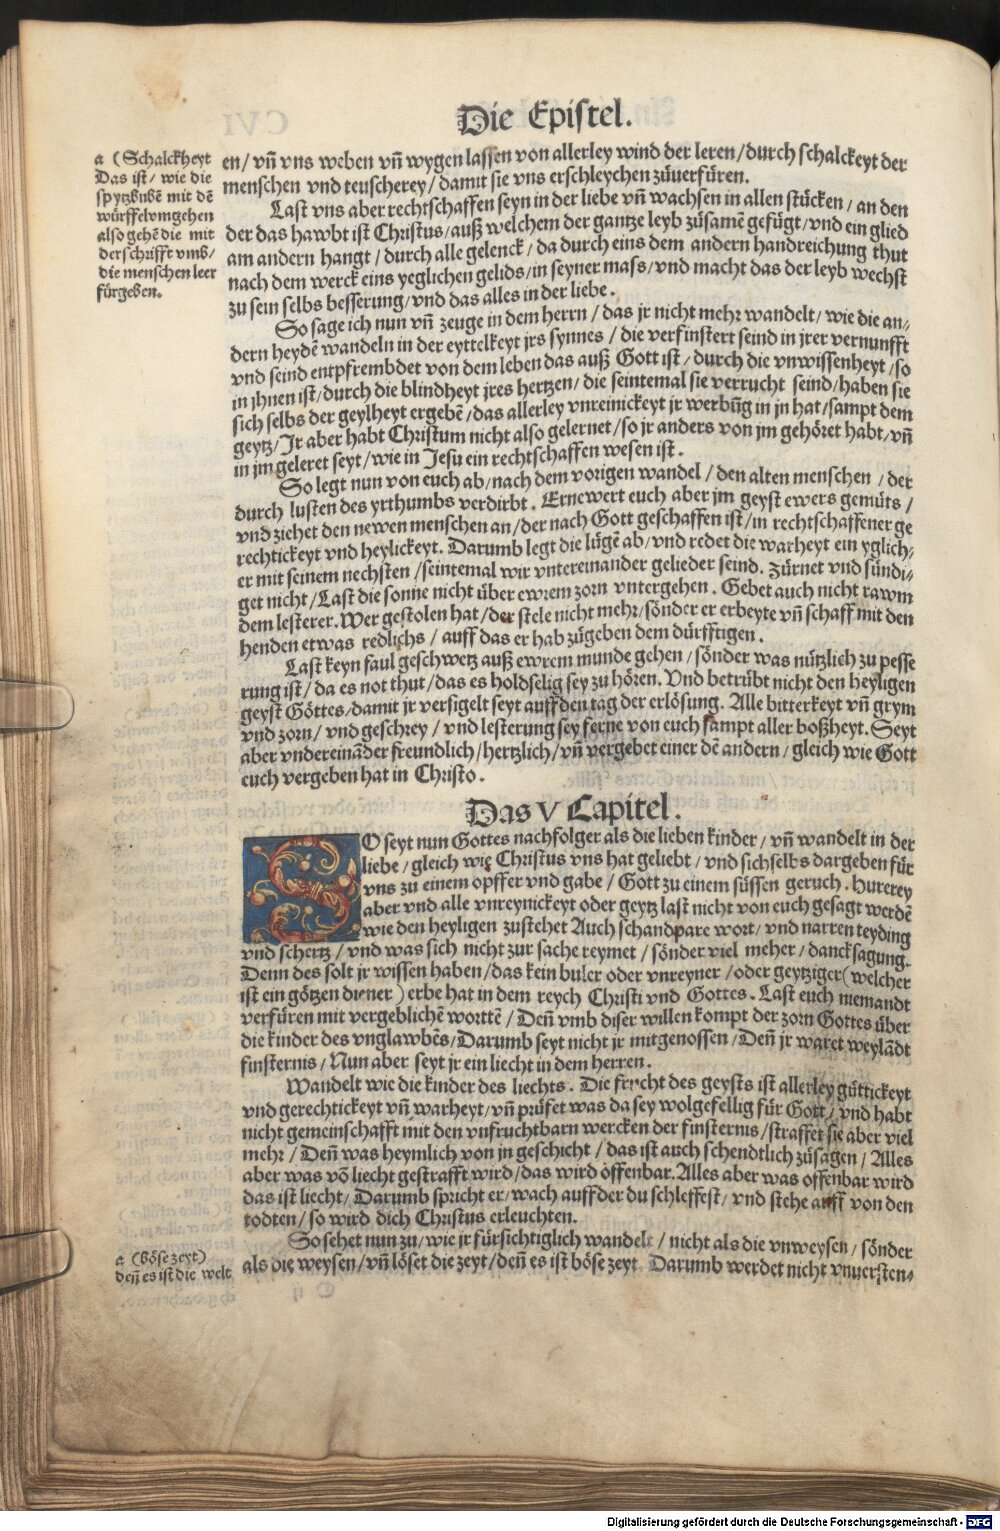 Die Epistel.
a (Schalckheyt
Das ist/ wie die
spytzbubẽ mit dẽ
würffel vmgehen
also gehẽ die mit
der schrifft vmb/
die menschen leer
fürgeben.
en/ vñ vns weben vñ wygen lassen von allerley wind der leren/ durch schalckeyt der
menschen vnd teuscherey/ damit sie vns erschleychen zůuerfüren.
Last vns aber rechtschaffen seyn in der liebe vñ wachsen in allen stücken/ an den
der das hawbt ist Christus/ auß welchem der gantze leyb zůsamẽ gefügt/ vnd ein glied
am andern hangt/ durch alle gelenck/ da durch eins dem andern handreichung thut
nach dem werck eins yeglichen gelids/ in seyner mass/ vnd macht das der leyb wechst
zu sein selbs besserung/ vnd das alles in der liebe.
So sage ich nun vñ zeuge in dem herrn/ das jr nicht mehr wandelt/ wie die an/
dern heydẽ wandeln in der eyttelkeyt jrs synnes/ die verfinstert seind in jrer vernunfft
vnd seind entpfrembdet von dem leben das auß Gott ist/ durch die vnwissenheyt/ so
in jhnen ist/ durch die blindheyt jres hertzen/ die seintemal sie verrucht seind/ haben sie
sich selbs der geylheyt ergebẽ/ das allerley vnreinickeyt jr werbũg in jn hat/ sampt dem
geytz/ Jr aber habt Christum nicht also gelernet/ so jr anders von jm gehöret habt/ vñ
in jm geleret seyt/ wie in Jesu ein rechtschaffen wesen ist.
So legt nun von euch ab/ nach dem vorigen wandel/ den alten menschen/ der
durch lusten des yrthumbs verdirbt. Ernewert euch aber jm geyst ewers gemüts/
vnd ziehet den newen menschen an/ der nach Gott geschaffen ist/ in rechtschaffener ge
rechtickeyt vnd heylickeyt. Darumb legt die lügẽ ab/ vnd redet die warheyt ein yglich/
er mit seinem nechsten/ seintemal wir vntereinander gelieder seind. Zürnet vnd sündi/
get nicht/ Last die sonne nicht über ewrem zorn vntergehen. Gebet auch nicht rawm
dem lesterer. Wer gestolen hat/ der stele nicht mehr/ sonder er erbeyte vñ schaff mit den
henden etwas redlichs/ auff das er hab zůgeben dem dürfftigen.
Last keyn faul geschwetz auß ewrem munde gehen/ sönder was nützlich zu pesse
rung ist/ da es not thut/ das es holdselig sey zu hören. Vnd betrübt nicht den heyligen
geyst Göttes/ damit jr versigelt seyt auff den tag der erlösung. Alle bitterkeyt vñ grym
vnd zorn/ vnd geschrey/ vnd lesterung sey ferne von euch sampt aller boßheyt. Seyt
aber vndereinãder freundlich/ hertzlich/ vñ vergebet einer dẽ andern/ gleich wie Gott
euch vergeben hat in Christo.
Das V Capitel.
SO seyt nun Gottes nachfolger als die lieben kinder/ vñ wandelt in der
liebe/ gleich wie Christus vns hat geliebt/ vnd sich selbs dargeben für
vns zu einem opffer vnd gabe/ Gott zu einem süssen geruch. Hurerey
aber vnd alle vnreynickeyt oder geytz last nicht von euch gesagt werdẽ
wie den heyligen zustehet Auch schandpare wort/ vnd narren teyding
vnd schertz/ vnd was sich nicht zur sache reymet/ sönder viel meher/ dancksagung.
Denn des solt jr wissen haben/ das kein buler oder vnreyner/ oder geytziger (welcher
ist ein götzen diener) erbe hat in dem reych Christi vnd Gottes. Last euch niemandt
verfüren mit vergeblichẽ worttẽ/ Deñ vmb diser willen kompt der zorn Gottes über
die kinder des vnglawbẽs/ Darumb seyt nicht jr mitgenossen/ Deñ jr waret weylãdt
finsternis/ Nun aber seyt jr ein liecht in dem herren.
Wandelt wie die kinder des liechts. Die frucht des geysts ist allerley güttickeyt
vnd gerechtickeyt vñ warheyt/ vñ prüfet was da sey wolgefellig für Gott/ vnd habt
nicht gemeinschafft mit den vnfruchtbarn wercken der finsternis/ straffet sie aber viel
mehr/ Deñ was heymlich von jn geschicht/ das ist auch schendtlich zůsagen/ Alles
aber was võ liecht gestrafft wird/ das wird öffenbar. Alles aber was offenbar wird
das ist liecht/ Darumb spricht er/ wach auff der du schleffest/ vnd stehe auff von den
todten/ so wird dich Christus erleuchten.
So sehet nun zu/ wie jr fürsichtiglich wandelt/ nicht als die vnweysen/ sönder
als die weysen/ vñ löset die zeyt/ deñ es ist böse zeyt. Darumb werdet nicht vnuersten/
a (böse zeyt)
deñ es ist die welt
Digitalisierung gefördert durch die Deutsche Forschungsgemeinschaft - DFG